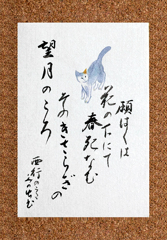 願はくは
花の下にて
春死なむ
そのきさらぎの
望月のころ
西行の